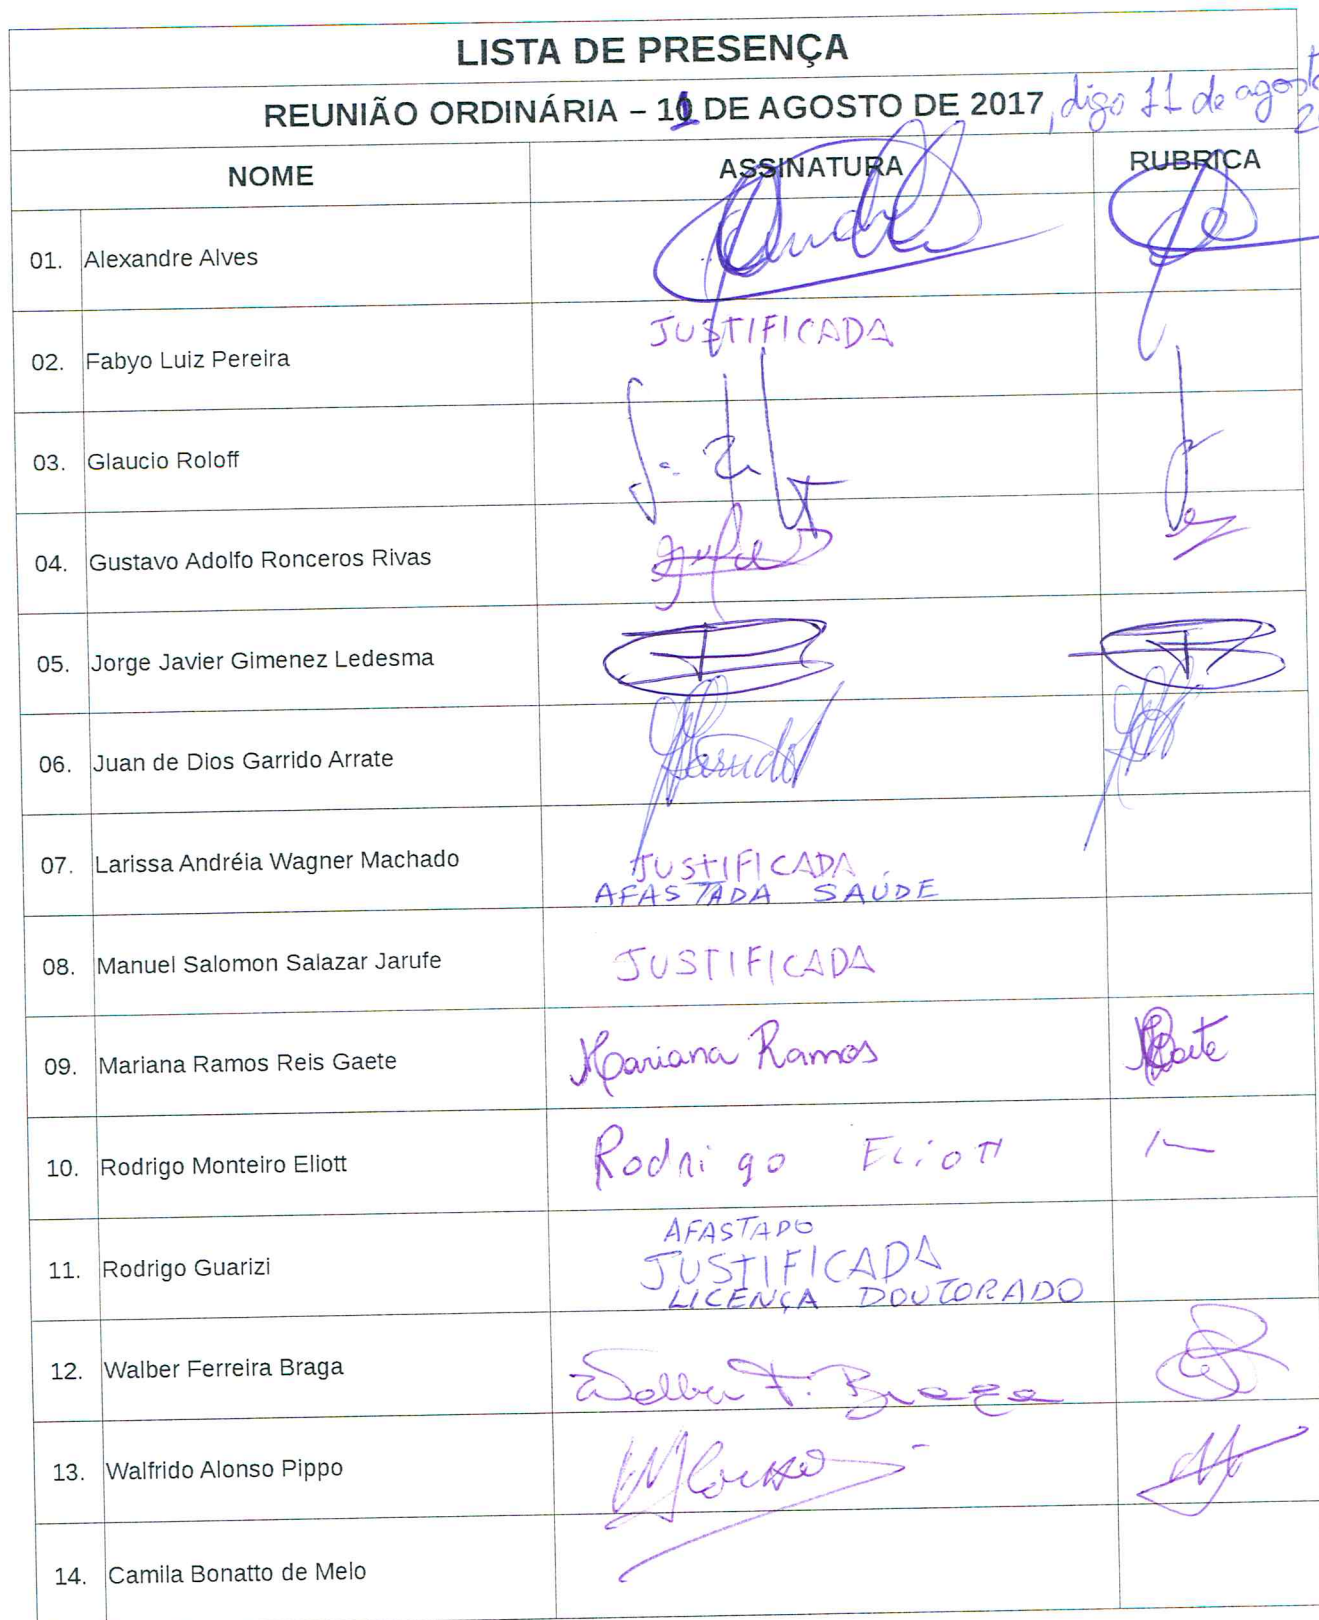 LISTA DE PRESENÇA
REUNIÃO ORDINÁRIA – 11 DE AGOSTO DE 2017, digo 11 de agosto
NOME ASSINATURA RUBRICA
01. Alexandre Alves
02. Fabyo Luiz Pereira JUSTIFICADA
03. Glaucio Roloff
04. Gustavo Adolfo Ronceros Rivas
05. Jorge Javier Gimenez Ledesma
06. Juan de Dios Garrido Arrate
07. Larissa Andréia Wagner Machado JUSTIFICADA
AFASTADA SAÚDE
08. Manuel Salomon Salazar Jarufe JUSTIFICADA
09. Mariana Ramos Reis Gaete Mariana Ramos
10. Rodrigo Monteiro Eliott Rodrigo Eliott
AFASTADO
11. Rodrigo Guarizi JUSTIFICADA
LICENÇA DOUTORADO
12. Walber Ferreira Braga Walber F. Braga
13. Walfrido Alonso Pippo
14. Camila Bonatto de Melo